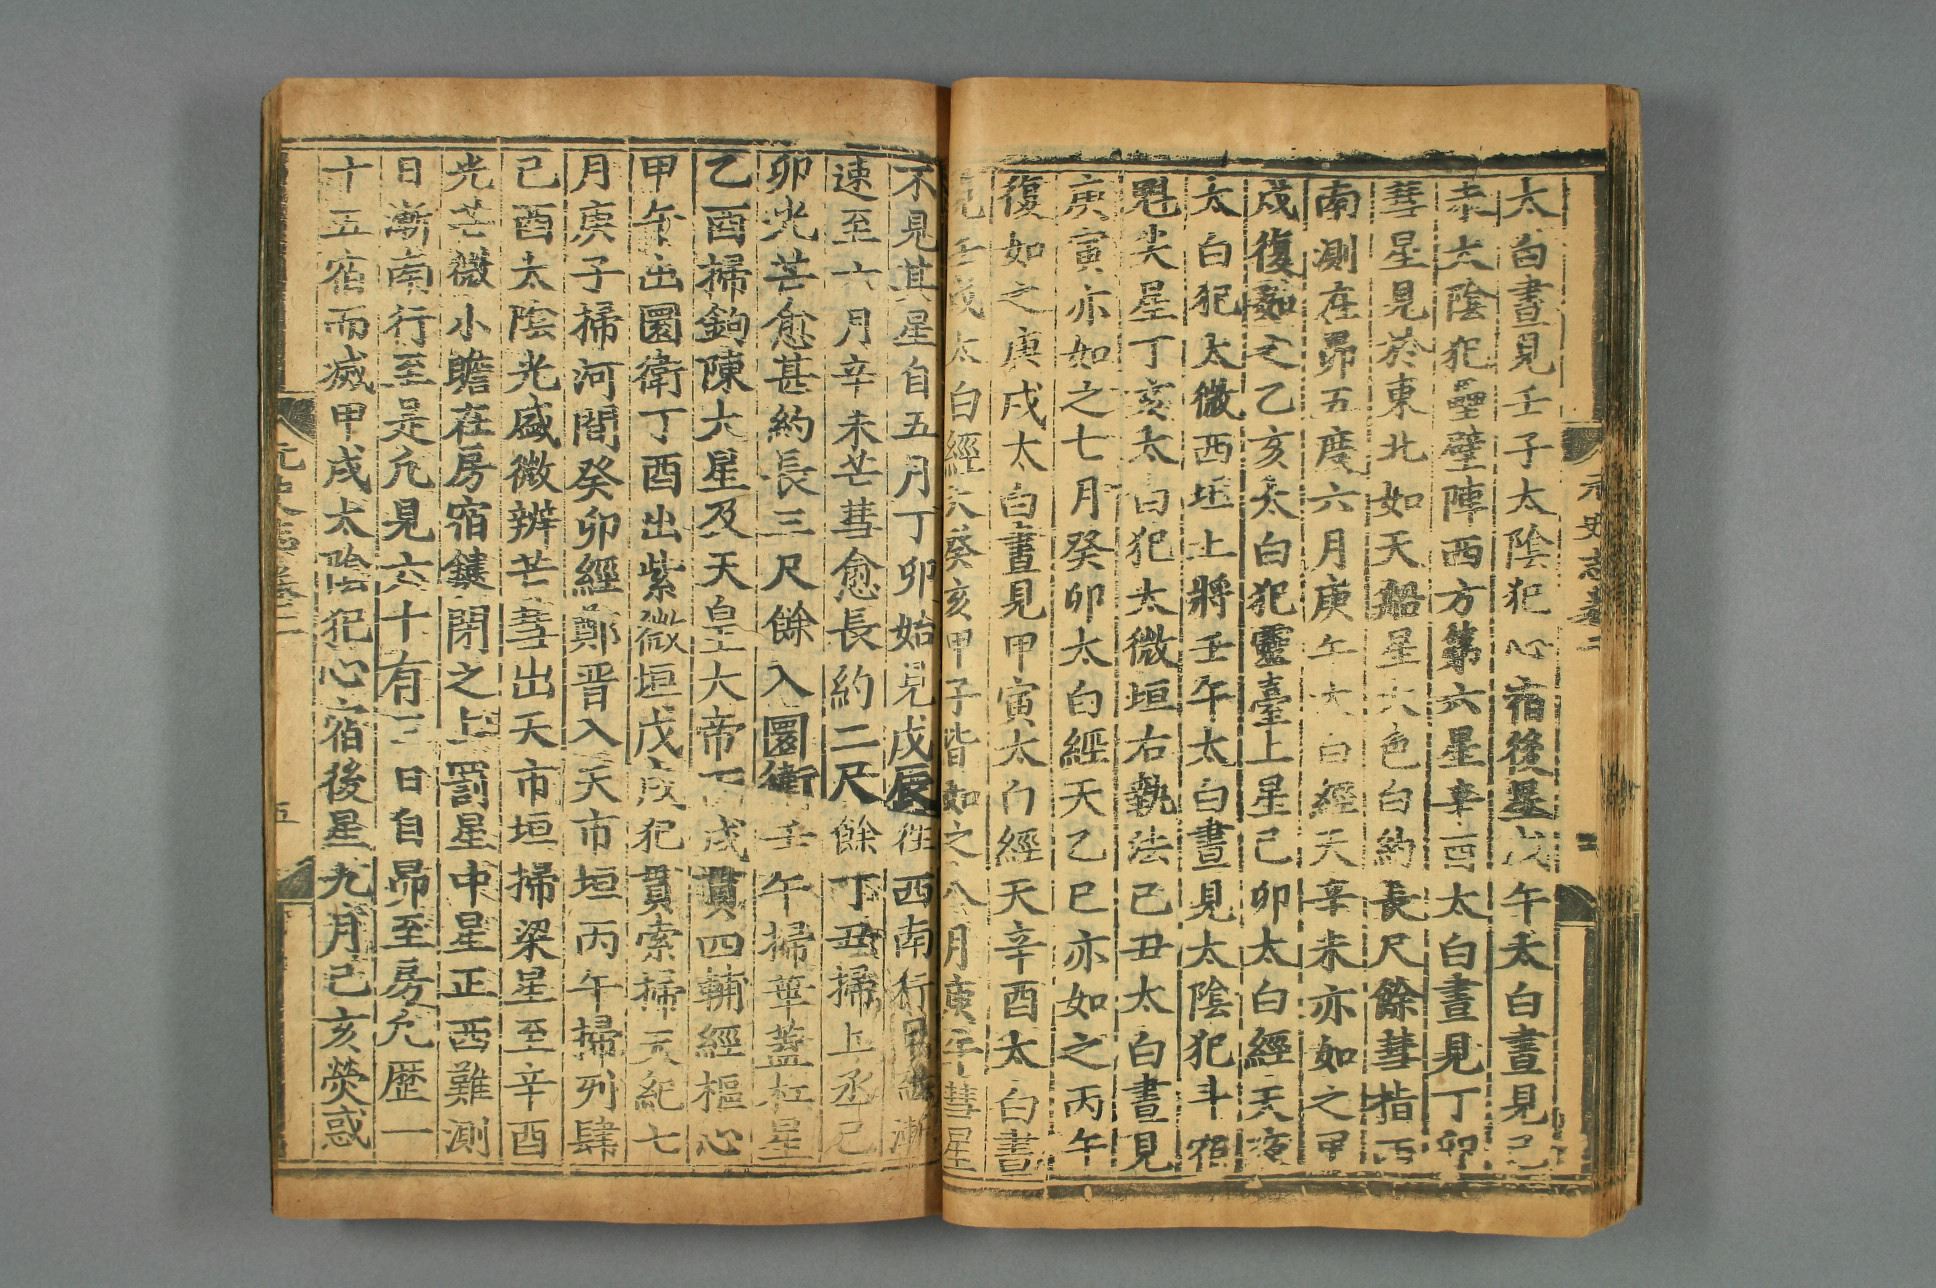 太白晝見壬子太陰犯心宿後星戊午太白晝見己
未太陰犯壘壁陣西方第六星辛酉太白晝見丁卯
彗星見於東北如天船星大色白約長尺餘彗指西
南測在昴五度六月庚午太白經天辛未亦如之甲
戌復如之乙亥太白犯靈臺上星己卯太白經天夜
太白犯太微西垣上將壬午太白晝見太陰犯斗宿
魁尖星丁亥太白犯太微垣右執法己丑太白晝見
庚寅亦如之七月癸卯太白經天乙巳亦如之丙午
復如之庚戌太白晝見甲寅太白經天辛酉太白晝
見壬戌太白經天癸亥甲子皆如之八月庚午彗星
不見其星自五月丁卯始見戊辰往西南行日益漸
速至六月辛未芒彗愈長約二尺餘丁丑掃上丞己
卯光芒愈甚約長三尺餘入圜衛壬午掃華蓋杠星
乙酉掃鉤陳大星及天皇大帝丙戌貫四輔經樞心
甲午出圜衛丁酉出紫微垣戊戌犯貫索掃天紀七
月庚子掃河間癸卯經鄭晋入天市垣丙午掃列肆
己酉太陰光盛微辨芒彗出天市垣掃梁星至辛酉
光芒微小瞻在房宿鍵閉之上罰星中星正西難測
日漸南行至是凢見六十有三日自昴至房凢歷一
十五宿而滅甲戌太陰犯心宿後星九月己亥熒惑
元史志卷二
五
元史志卷二